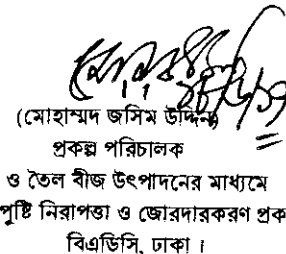 (মোহাম্মদ জসিম উদ্দিন)
প্রকল্প পরিচালক
ও তৈল বীজ উৎপাদনের মাধ্যমে
পুষ্টি নিরাপত্তা ও জোরদারকরণ প্রক
বিএডিসি, ঢাকা।